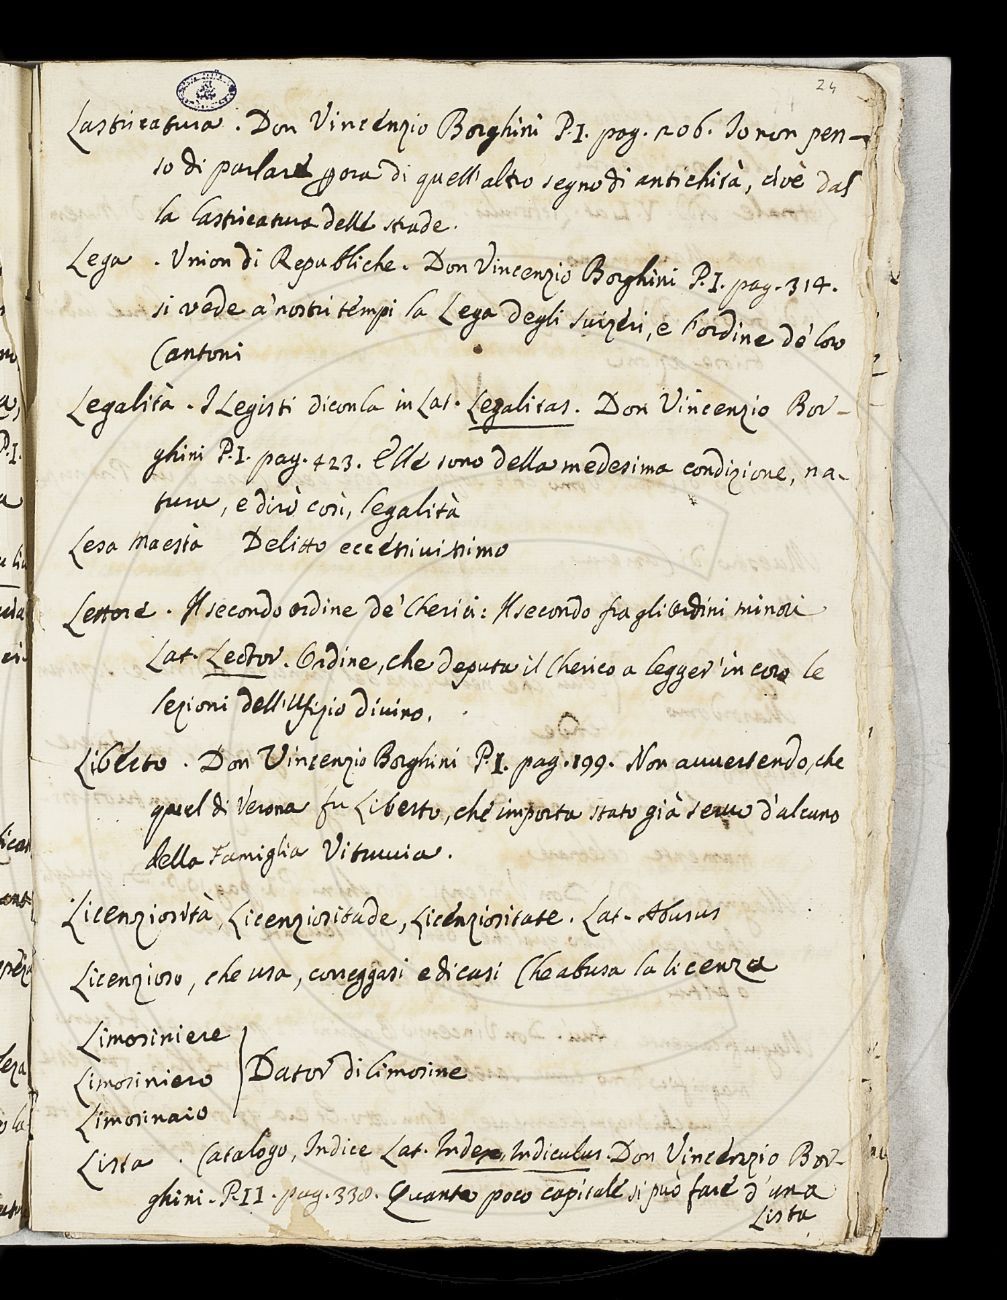 24
Lastricatura. Don Vincenzio Borghini P.I. pag. 206. Io non pen-
so di parlare ora di quell'altro segno di antichità, cioè dal
la lastricatura delle strade.
Lega. Union di Republiche. Don Vincenzio Borghini P.I. pag. 314.
si vede a' nostri tempi la Lega degli suizzeri, e l'ordine de' loro
Cantoni
Legalità. I Legisti diconla in Lat. Legalitas. Don Vincenzio Bor-
ghini P.I. pag. 423. Elle sono della medesima condizione, na-
tura, e dirò così, legalità
Lesa Maestà Delitto eccessivissimo
Lettore. Il secondo ordine de' Cherici: Il secondo fra gli ordini minori
Lat. Lector. Ordine, che deputa il Cherico a legger' in coro le
lezioni dell'Ufizio divino.
Liberto. Don Vincenzio Borghini P.I. pag. 199. Non avvertendo, che
quel di Verona fu Liberto, che importa stato già servo d'alcuno
della Famiglia Vitruvia.
Licenziosità, Licenziositade, Licenziositate. Lat. Abusus
Licenzioso, che usa, correggasi e dicasi Che abusa la licenza
Limosiniere
Limosiniero
Dator di limosine
Limosinaio
Lista. Catalogo, Indice Lat. Index, Indiculus. Don Vincenzio Bor-
ghini. P.II. pag. 338. Quanto poco capitale si può fare d'una
Lista